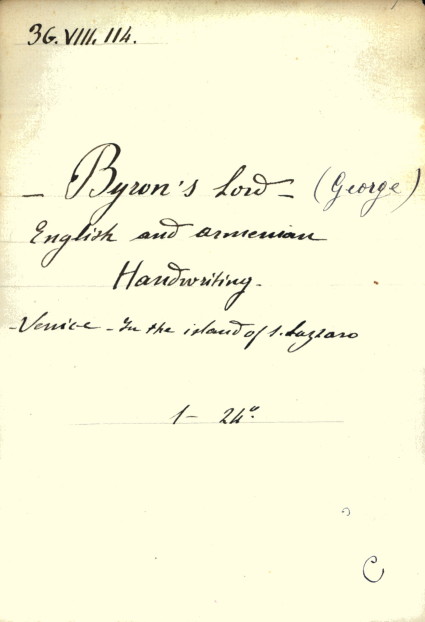 36. VIII. 114.
- Byron's Lord - (George)
English and armenian
Handwriting.
- Venice - In the island of S. Lazzaro
1 - 24°.
C